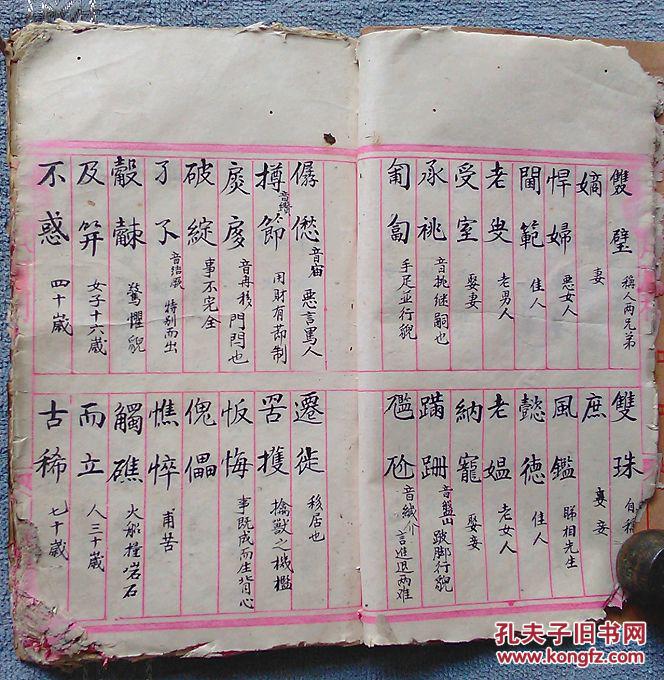 雙璧 稱人两兄弟
嫡 妻
悍婦 惡女人
閫範 佳人
老叟 老男人
受室 娶妻
承祧 音挑継嗣也
匍匐 手足並行貌
雙珠 自稱
庶 妾
風鑑 睇相先生
懿德 佳人
老媪 老女人
納寵 娶妾
蹣跚 音盤山 跛脚行貌
尷尬 音緘介 言進退两难
僝僽 惡言罵人
撙節 用財有節制
扊扅 門閂也
破綻 事不完全
孑孓 特别而出
觳觫 驚懼貌
及笄 女子十六歲
不惑 四十歲
遷徙 移居也
罟擭 擒獸之機檻
悔 事既成而生背心
傀儡
憔悴 甫苦
觸礁 火船撞岩石
而立 人三十歲
古稀 七十歲
孔夫子旧书网
www.kongfz.com